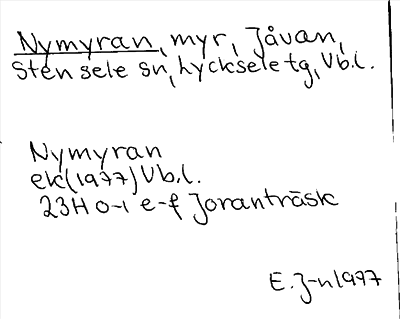 Nymyran, myr, Jåvan,
Stensele sn, Lycksele tg, Vb.l.
Nymyran
ek(1977) Vb.l.
23H 0-1 e-f Joranträsk
E.J-n 1977